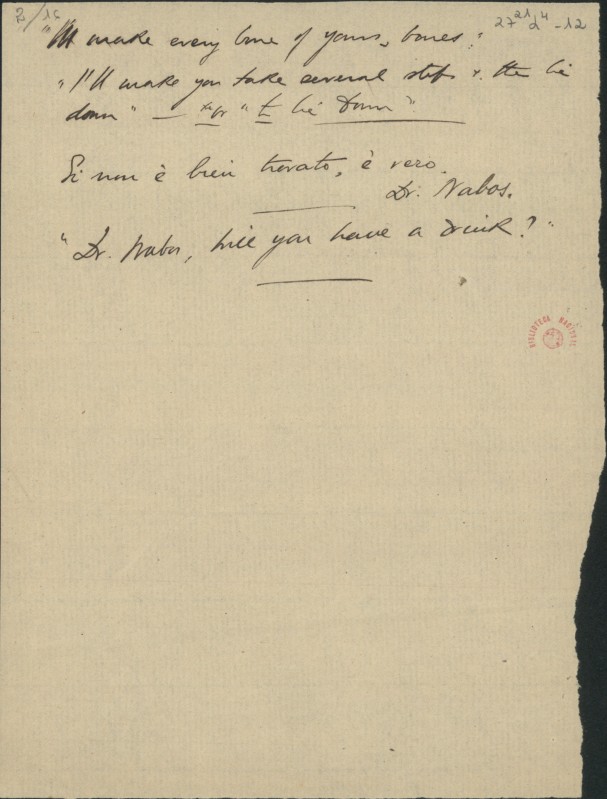 2/16
27 21 2 4 -12
"I'll make every bone of yours, bones."
"I'll make you take several steps & then lie
down" — or "to lie down"
Si non è bien trovato, è vero.
Dr. Nabos.
"Dr. Nabos, will you have a drink?"
BIBLIOTECA NACIONAL